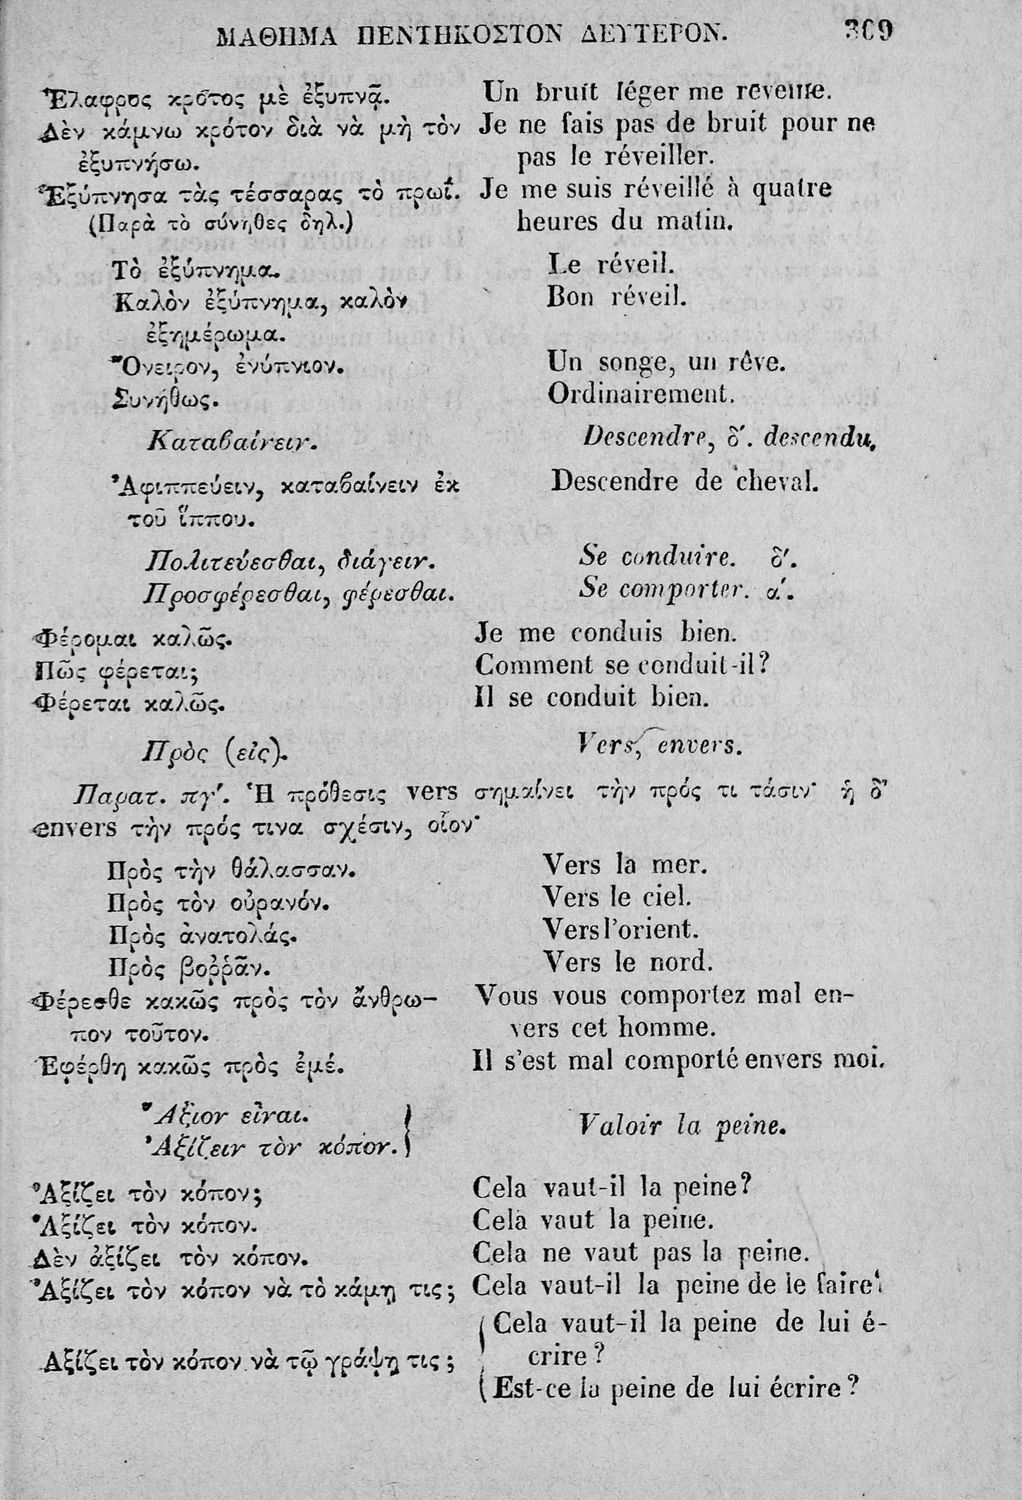 ΜΑΘΗΜΑ ΠΕΝΤΗΚΟΣΤΟΝ ΔΕΥΤΕΡΟΝ. 309
Ἐλαφρος κρότος μὲ ἐξυπνᾷ. Un bruit léger me réveille.
Δὲν κάμνω κρότον διὰ νὰ μὴ τὸν Je ne fais pas de bruit pour ne
ἐξυπνήσω. pas le réveiller.
Ἐξύπνησα τὰς τέσσαρας τὸ πρωΐ. Je me suis réveillé à quatre
(Παρὰ τὸ σύνηθες δηλ.) heures du matin.
Τὸ ἐξύπνημα. Le réveil.
Καλὸν ἐξύπνημα, καλὸν Bon réveil.
ἐξημέρωμα.
Ὄνειρον, ἐνύπνιον. Un songe, un rêve.
Συνήθως. Ordinairement.
Καταβαίνειν. Descendre, δ'. descendu.
Ἀφιππεύειν, καταβαίνειν ἐκ Descendre de cheval.
τοῦ ἵππου.
Πολιτεύεσθαι, διάγειν. Se conduire. δ'.
Προσφέρεσθαι, φέρεσθαι. Se comporter. α'.
Φέρομαι καλῶς. Je me conduis bien.
Πῶς φέρεται; Comment se conduit-il?
Φέρεται καλῶς. Il se conduit bien.
Πρὸς (εἰς). Vers, envers.
Παρατ. πγ'. Ἡ πρόθεσις vers σημαίνει τὴν πρός τι τάσιν· ἡ δ'
envers τὴν πρός τινα σχέσιν, οἷον·
Πρὸς τὴν θάλασσαν. Vers la mer.
Πρὸς τὸν οὐρανόν. Vers le ciel.
Πρὸς ἀνατολάς. Vers l'orient.
Πρὸς βοῤῥᾶν. Vers le nord.
Φέρεσθε κακῶς πρὸς τὸν ἄνθρω- Vous vous comportez mal en-
πον τοῦτον. vers cet homme.
Ἐφέρθη κακῶς πρὸς ἐμέ. Il s'est mal comporté envers moi.
Ἄξιον εἶναι.
Ἀξίζειν τὸν κόπον. Valoir la peine.
Ἀξίζει τὸν κόπον; Cela vaut-il la peine?
Ἀξίζει τὸν κόπον. Cela vaut la peine.
Δὲν ἀξίζει τὸν κόπον. Cela ne vaut pas la peine.
Ἀξίζει τὸν κόπον νὰ τὸ κάμῃ τις; Cela vaut-il la peine de le faire?
Cela vaut-il la peine de lui é-
Ἀξίζει τὸν κόπον νὰ τῷ γράψῃ τις; crire?
Est-ce la peine de lui écrire?